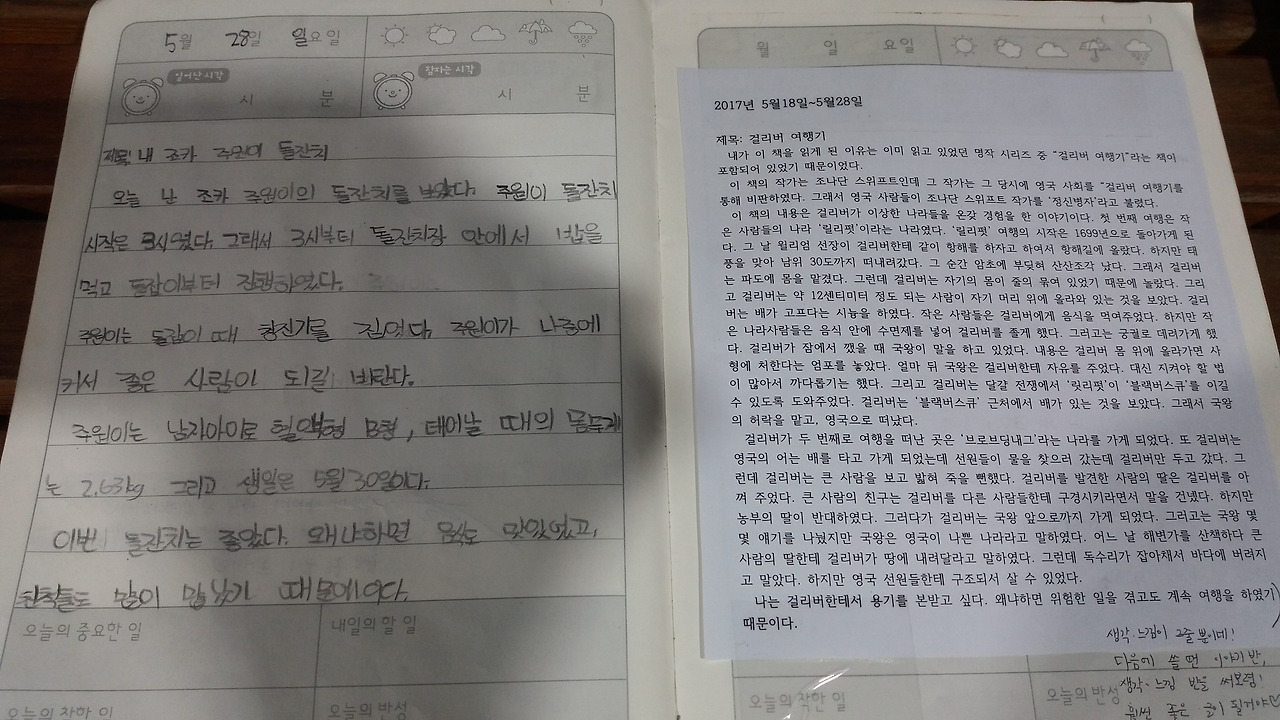 5월 28일 일요일
일어난 시각
시 분
잠자는 시각
시 분
제목: 내 조카 주원이 돌잔치
오늘 난 조카 주원이의 돌잔치를 보았다. 주원이 돌잔치
시작은 3시였다. 그래서 3시부터 돌잔치장 안에서 밥을
먹고 돌잡이부터 진행하였다.
주원이는 돌잡이 때 청진기를 집었다. 주원이가 나중에
커서 좋은 사람이 되길 바란다.
주원이는 남자아이로 혈액형 B형, 태어날 때의 몸무게
는 2.63kg 그리고 생일은 5월 30일이다.
이번 돌잔치는 좋았다. 왜냐하면 음식도 맛있었고,
친척들도 많이 만났기 때문이다.
오늘의 중요한 일
내일의 할 일
오늘의 착한 일
오늘의 반성
월 일 요일
2017년 5월18일~5월28일
제목: 걸리버 여행기
내가 이 책을 읽게 된 이유는 이미 읽고 있었던 명작 시리즈 중 "걸리버 여행기"라는 책이
포함되어 있었기 때문이었다.
이 책의 작가는 조나단 스위프트인데 그 작가는 그 당시에 영국 사회를 "걸리버 여행기를
통해 비판하였다. 그래서 영국 사람들이 조나단 스위프트 작가를 '정신병자'라고 불렀다.
이 책의 내용은 걸리버가 이상한 나라들을 온갖 경험을 한 이야기이다. 첫 번째 여행은 작
은 사람들의 나라 '릴리펏'이라는 나라였다. '릴리펏' 여행의 시작은 1699년으로 돌아가게 된
다. 그 날 윌리엄 선장이 걸리버한테 같이 항해를 하자고 하여서 항해길에 올랐다. 하지만 태
풍을 맞아 남위 30도까지 떠내려갔다. 그 순간 암초에 부딪혀 산산조각 났다. 그래서 걸리버
는 파도에 몸을 맡겼다. 그런데 걸리버는 자기의 몸이 줄의 묶여 있었기 때문에 놀랐다. 그리
고 걸리버는 약 12센티미터 정도 되는 사람이 자기 머리 위에 올라와 있는 것을 보았다. 걸리
버는 배가 고프다는 시늉을 하였다. 작은 사람들은 걸리버에게 음식을 먹여주었다. 하지만 작
은 나라사람들은 음식 안에 수면제를 넣어 걸리버를 졸게 했다. 그러고는 궁궐로 데리가게 했
다. 걸리버가 잠에서 깼을 때 국왕이 말을 하고 있었다. 내용은 걸리버 몸 위에 올라가면 사
형에 처한다는 엄포를 놓았다. 얼마 뒤 국왕은 걸리버한테 자유를 주었다. 대신 지켜야 할 법
이 많아서 까다롭기는 했다. 그리고 걸리버는 달걀 전쟁에서 '릿리펏'이 '블랙버스큐'를 이길
수 있도록 도와주었다. 걸리버는 '블랙버스큐' 근처에서 배가 있는 것을 보았다. 그래서 국왕
의 허락을 맡고, 영국으로 떠났다.
걸리버가 두 번째로 여행을 떠난 곳은 '브로브딩내그'라는 나라를 가게 되었다. 또 걸리버는
영국의 어는 배를 타고 가게 되었는데 선원들이 물을 찾으러 갔는데 걸리버만 두고 갔다. 그
런데 걸리버는 큰 사람을 보고 밟혀 죽을 뻔했다. 걸리버를 발견한 사람의 딸은 걸리버를 아
껴 주었다. 큰 사람의 친구는 걸리버를 다른 사람들한테 구경시키라면서 말을 건넸다. 하지만
농부의 딸이 반대하였다. 그러다가 걸리버는 국왕 앞으로까지 가게 되었다. 그러고는 국왕 몇
몇 얘기를 나눴지만 국왕은 영국이 나쁜 나라라고 말하였다. 어느 날 해변가를 산책하다 큰
사람의 딸한테 걸리버가 땅에 내려달라고 말하였다. 그런데 독수리가 잡아채서 바다에 버려지
고 말았다. 하지만 영국 선원들한테 구조되서 살 수 있었다.
나는 걸리버한테서 용기를 본받고 싶다. 왜냐하면 위험한 일을 겪고도 계속 여행을 하였기
때문이다.
생각·느낌이 2줄 뿐이네!
다음에 쓸 땐 이야기 반,
생각·느낌 반을 써보렴!
훨씬 좋은 글이 될거야
오늘의 착한 일
오늘의 반성